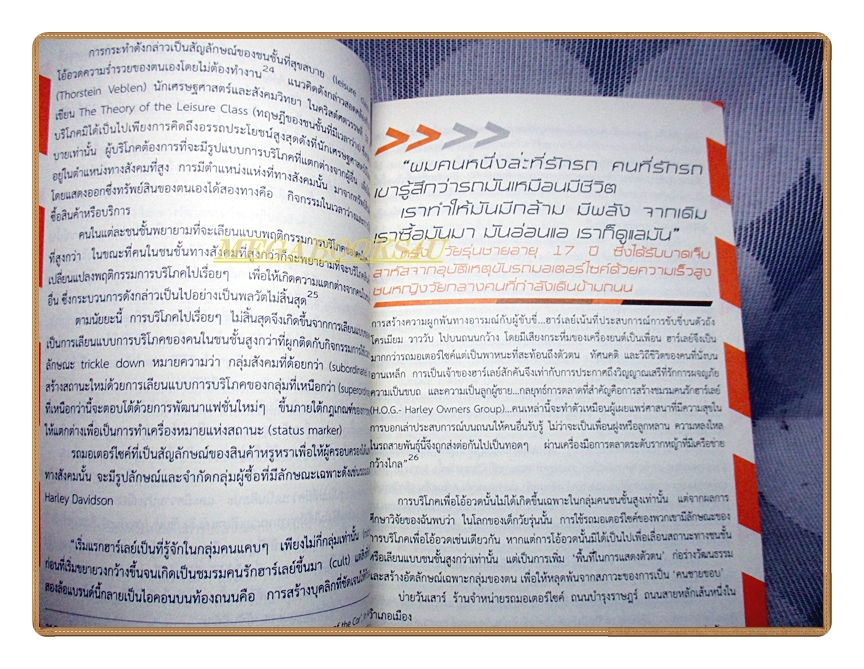 การกระทำดังกล่าวเป็นสัญลักษณ์ของชนชั้นที่สุขสบาย (leisure
โอ้อวดความร่ำรวยของตนเองโดยไม่ต้องทำงาน24 แนวคิดดังกล่าวสอดคล้อง
(Thorstein Veblen) นักเศรษฐศาสตร์และสังคมวิทยา ในคริสต์ศตวรรษที่
เขียน The Theory of the Leisure Class (ทฤษฎีของชนชั้นที่มีเวลาว่าง)
บริโภคมิได้เป็นไปเพียงการคิดถึงอรรถประโยชน์สูงสุดดังที่นักเศรษฐศาสตร์
บายเท่านั้น ผู้บริโภคต้องการที่จะมีรูปแบบการบริโภคที่แตกต่างจากผู้อื่น
อยู่ในตำแหน่งทางสังคมที่สูง การมีตำแหน่งแห่งที่ทางสังคมนั้น
โดยแสดงออกซึ่งทรัพย์สินของตนเองได้สองทางคือ กิจกรรมในเวลาว่างและ
ซื้อสินค้าหรือบริการ
คนในแต่ละชนชั้นพยายามที่จะเลียนแบบพฤติกรรมการบริโภค
ที่สูงกว่า ในขณะที่คนในชนชั้นทางสังคมที่สูงกว่าก็จะพยายามที่จะบริโภค
เปลี่ยนแปลงพฤติกรรมการบริโภคไปเรื่อยๆ เพื่อให้เกิดความแตกต่างจาก
อื่น ซึ่งกระบวนการดังกล่าวเป็นไปอย่างเป็นพลวัตไม่สิ้นสุด25
ตามนัยยะนี้ การบริโภคไปเรื่อยๆ ไม่สิ้นสุดจึงเกิดขึ้นจากการเลียนแบบ
เป็นการเลียนแบบการบริโภคของคนในชนชั้นสูงกว่าที่ผูกติดกับกิจกรรมการใช้
ลักษณะ trickle down หมายความว่า กลุ่มสังคมที่ด้อยกว่า (subordinate
สร้างสถานะใหม่ด้วยการเลียนแบบการบริโภคของกลุ่มที่เหนือกว่า
ที่เหนือกว่านี้จะตอบโต้ด้วยการพัฒนาแฟชั่นใหม่ๆ ขึ้นภายใต้กฎเกณฑ์ของ
ให้แตกต่างเพื่อเป็นการทำเครื่องหมายแห่งสถานะ (status marker)
รถมอเตอร์ไซค์ที่เป็นสัญลักษณ์ของสินค้าหรูหราเพื่อให้ผู้ครอบครอง
ทางสังคมนั้น จะมีรูปลักษณ์และจำกัดกลุ่มผู้ซื้อที่มีลักษณะเฉพาะดังเช่น
Harley Davidson
"เริ่มแรกฮาร์เลย์เป็นที่รู้จักในกลุ่มคนแคบๆ เพียงไม่กี่กลุ่มเท่านั้น
ก่อนที่เริ่มขยายวงกว้างขึ้นจนเกิดเป็นชมรมคนรักฮาร์เลย์ขึ้นมา (cult)
สองล้อแบรนด์นี้กลายเป็นไอคอนบนท้องถนนคือ การสร้างบุคลิกที่ชัดเจน
of the Car"
"ผมคนหนึ่งล่ะที่รักรถ คนที่รักรถ
เขารู้สึกว่ารถมันเหมือนมีชีวิต
เราทำให้มันมีกล้าม มีพลัง จากเดิม
เราซื้อมันมา มันอ่อนแอ เราก็ดูแลมัน"
วัยรุ่นชายอายุ 17 ปี ซึ่งได้รับบาดเจ็บ
สาหัสจากอุบัติเหตุขับรถมอเตอร์ไซค์ด้วยความเร็วสูง
ชนหญิงวัยกลางคนที่กำลังเดินข้ามถนน
การสร้างความผูกพันทางอารมณ์กับผู้ขับขี่...ฮาร์เลย์เน้นที่ประสบการณ์การขับขี่บนตัวถัง
โครเมียม วาววับ ไปบนถนนกว้าง โดยมีเสียงกระหึ่มของเครื่องยนต์เป็นเพื่อน ฮาร์เลย์จึงเป็น
มากกว่ารถมอเตอร์ไซค์แต่เป็นพาหนะที่สะท้อนถึงตัวตน ทัศนคติ และวิถีชีวิตของคนที่นั่งบน
อานเหล็ก การเป็นเจ้าของฮาร์เลย์สักคันจึงเท่ากับการประกาศถึงวิญญาณเสรีที่รักการผจญภัย
ความเป็นขบถ และความเป็นลูกผู้ชาย...กลยุทธ์การตลาดที่สำคัญคือการสร้างชมรมคนรักฮาร์เลย์
(H.O.G.- Harley Owners Group)...คนเหล่านี้จะทำตัวเหมือนผู้เผยแพร่ศาสนาที่มีความสุขใน
การบอกเล่าประสบการณ์บนถนนให้คนอื่นรับรู้ ไม่ว่าจะเป็นเพื่อนฝูงหรือลูกหลาน ความหลงใหล
ในรถสายพันธุ์นี้จึงถูกส่งต่อกันไปเป็นทอดๆ ผ่านเครื่องมือการตลาดระดับรากหญ้าที่มีเครือข่าย
กว้างไกล"26
การบริโภคเพื่อโอ้อวดนั้นไม่ได้เกิดขึ้นเฉพาะในกลุ่มคนชนชั้นสูงเท่านั้น แต่จากผลการ
ศึกษาวิจัยของฉันพบว่า ในโลกของเด็กวัยรุ่นนั้น การใช้รถมอเตอร์ไซค์ของพวกเขามีลักษณะของ
การบริโภคเพื่อโอ้อวดเช่นเดียวกัน หากแต่การโอ้อวดนั้นมิได้เป็นไปเพื่อเลื่อนสถานะทางชนชั้น
หรือเลียนแบบชนชั้นสูงกว่าเท่านั้น แต่เป็นการเพิ่ม 'พื้นที่ในการแสดงตัวตน' ก่อร่างวัฒนธรรม
และสร้างอัตลักษณ์เฉพาะกลุ่มของตน เพื่อให้หลุดพ้นจากสภาวะของการเป็น 'คนชายขอบ'
บ่ายวันเสาร์ ร้านจำหน่ายรถมอเตอร์ไซค์ ถนนบำรุงราษฎร์ ถนนสายหลักเส้นหนึ่งใน
อำเภอเมือง
MEGABOOKS4U